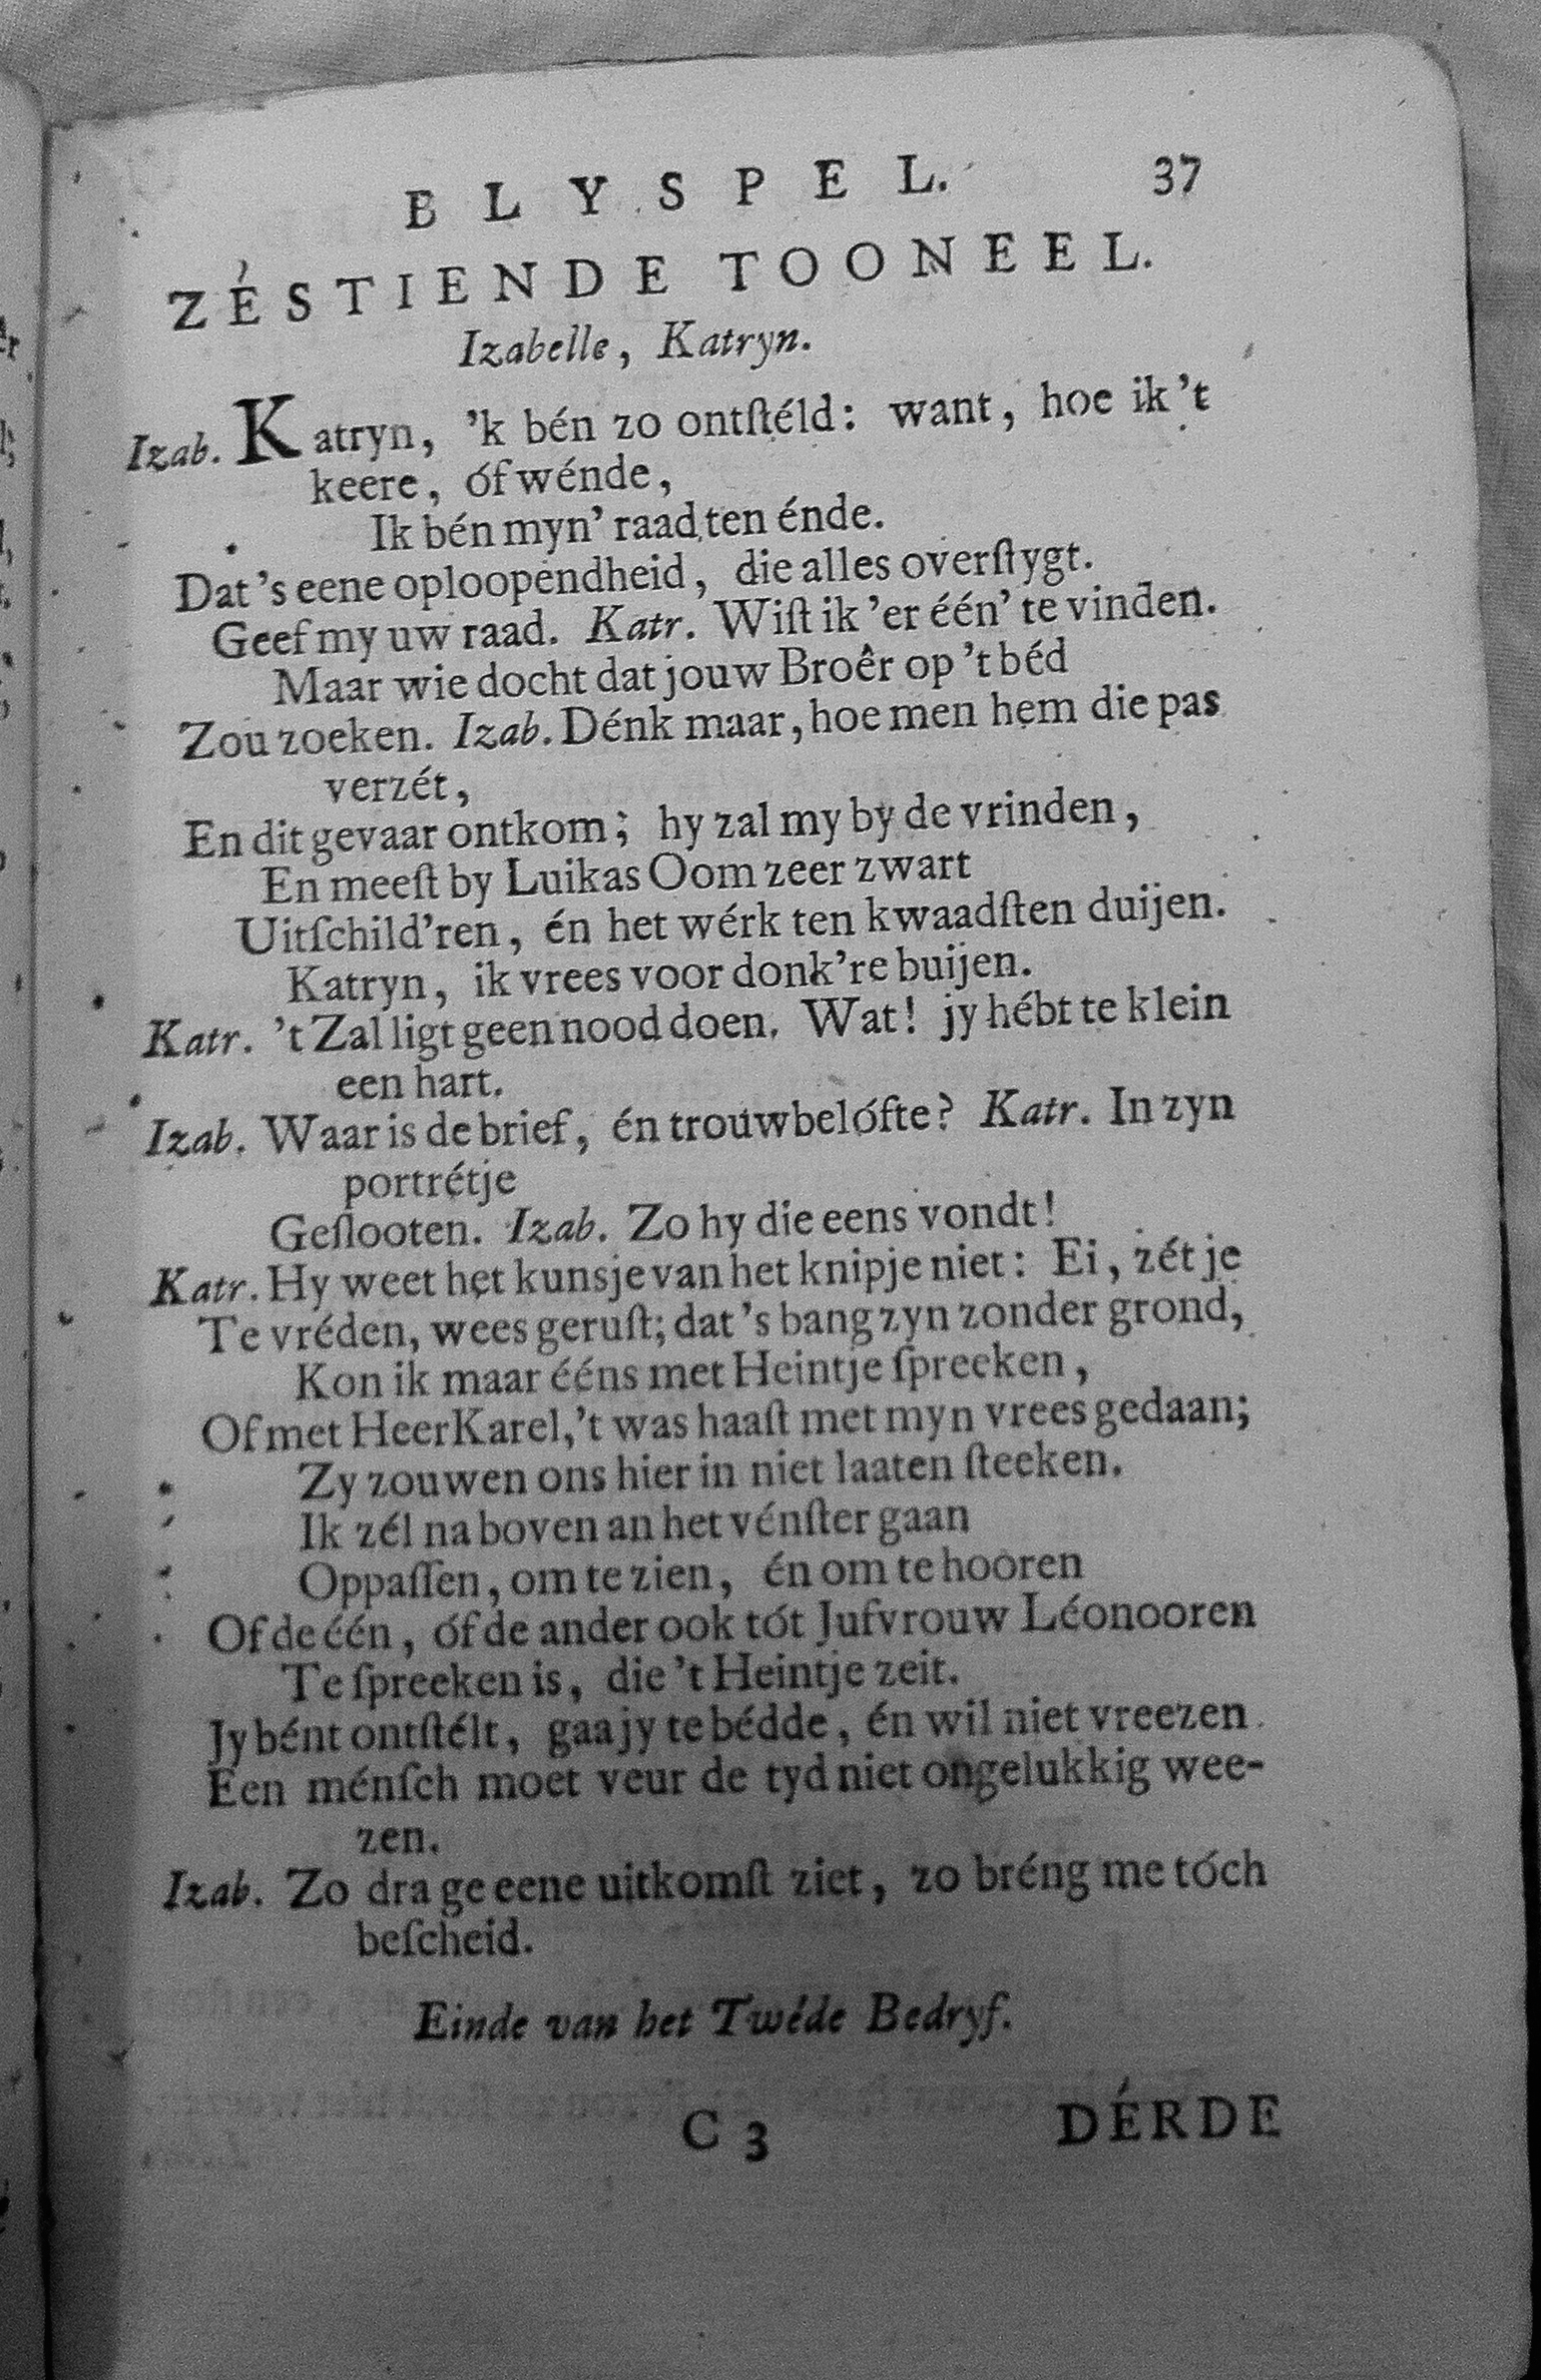 BLYSPEL. 37
ZÉSTIENDE TOONEEL.
Izabelle, Katryn.
Izab. Katryn, 'k bén zo ontſtéld: want, hoe ik 't
keere, óf wénde,
Ik bén myn' raad ten énde.
Dat 's eene oploopendheid, die alles overſtygt.
Geef my uw raad. Katr. Wiſt ik 'er één' te vinden.
Maar wie docht dat jouw Broêr op 't béd
Zou zoeken. Izab. Dénk maar, hoe men hem die pas
verzét,
En dit gevaar ontkom; hy zal my by de vrinden,
En meeſt by Luikas Oom zeer zwart
Uitſchild'ren, én het wérk ten kwaadſten duijen.
Katryn, ik vrees voor donk're buijen.
Katr. 't Zal ligt geen nood doen. Wat! jy hébt te klein
een hart.
Izab. Waar is de brief, én trouwbelófte? Katr. In zyn
portrétje
Geſlooten. Izab. Zo hy die eens vondt!
Katr. Hy weet het kunsje van het knipje niet: Ei, zét je
Te vréden, wees geruſt; dat 's bang zyn zonder grond,
Kon ik maar ééns met Heintje ſpreeken,
Of met Heer Karel, 't was haaſt met myn vrees gedaan;
Zy zouwen ons hier in niet laaten ſteeken.
Ik zél na boven an het vénſter gaan
Oppaſſen, om te zien, én om te hooren
Of de één, óf de ander ook tót Jufvrouw Léonooren
Te ſpreeken is, die 't Heintje zeit.
Jy bént ontſtélt, gaa jy te bédde, én wil niet vreezen.
Een ménſch moet veur de tyd niet ongelukkig wee-
zen.
Izab. Zo dra ge eene uitkomſt ziet, zo bréng me tóch
beſcheid.
Einde van het Twéde Bedryf.
C 3 DÉRDE